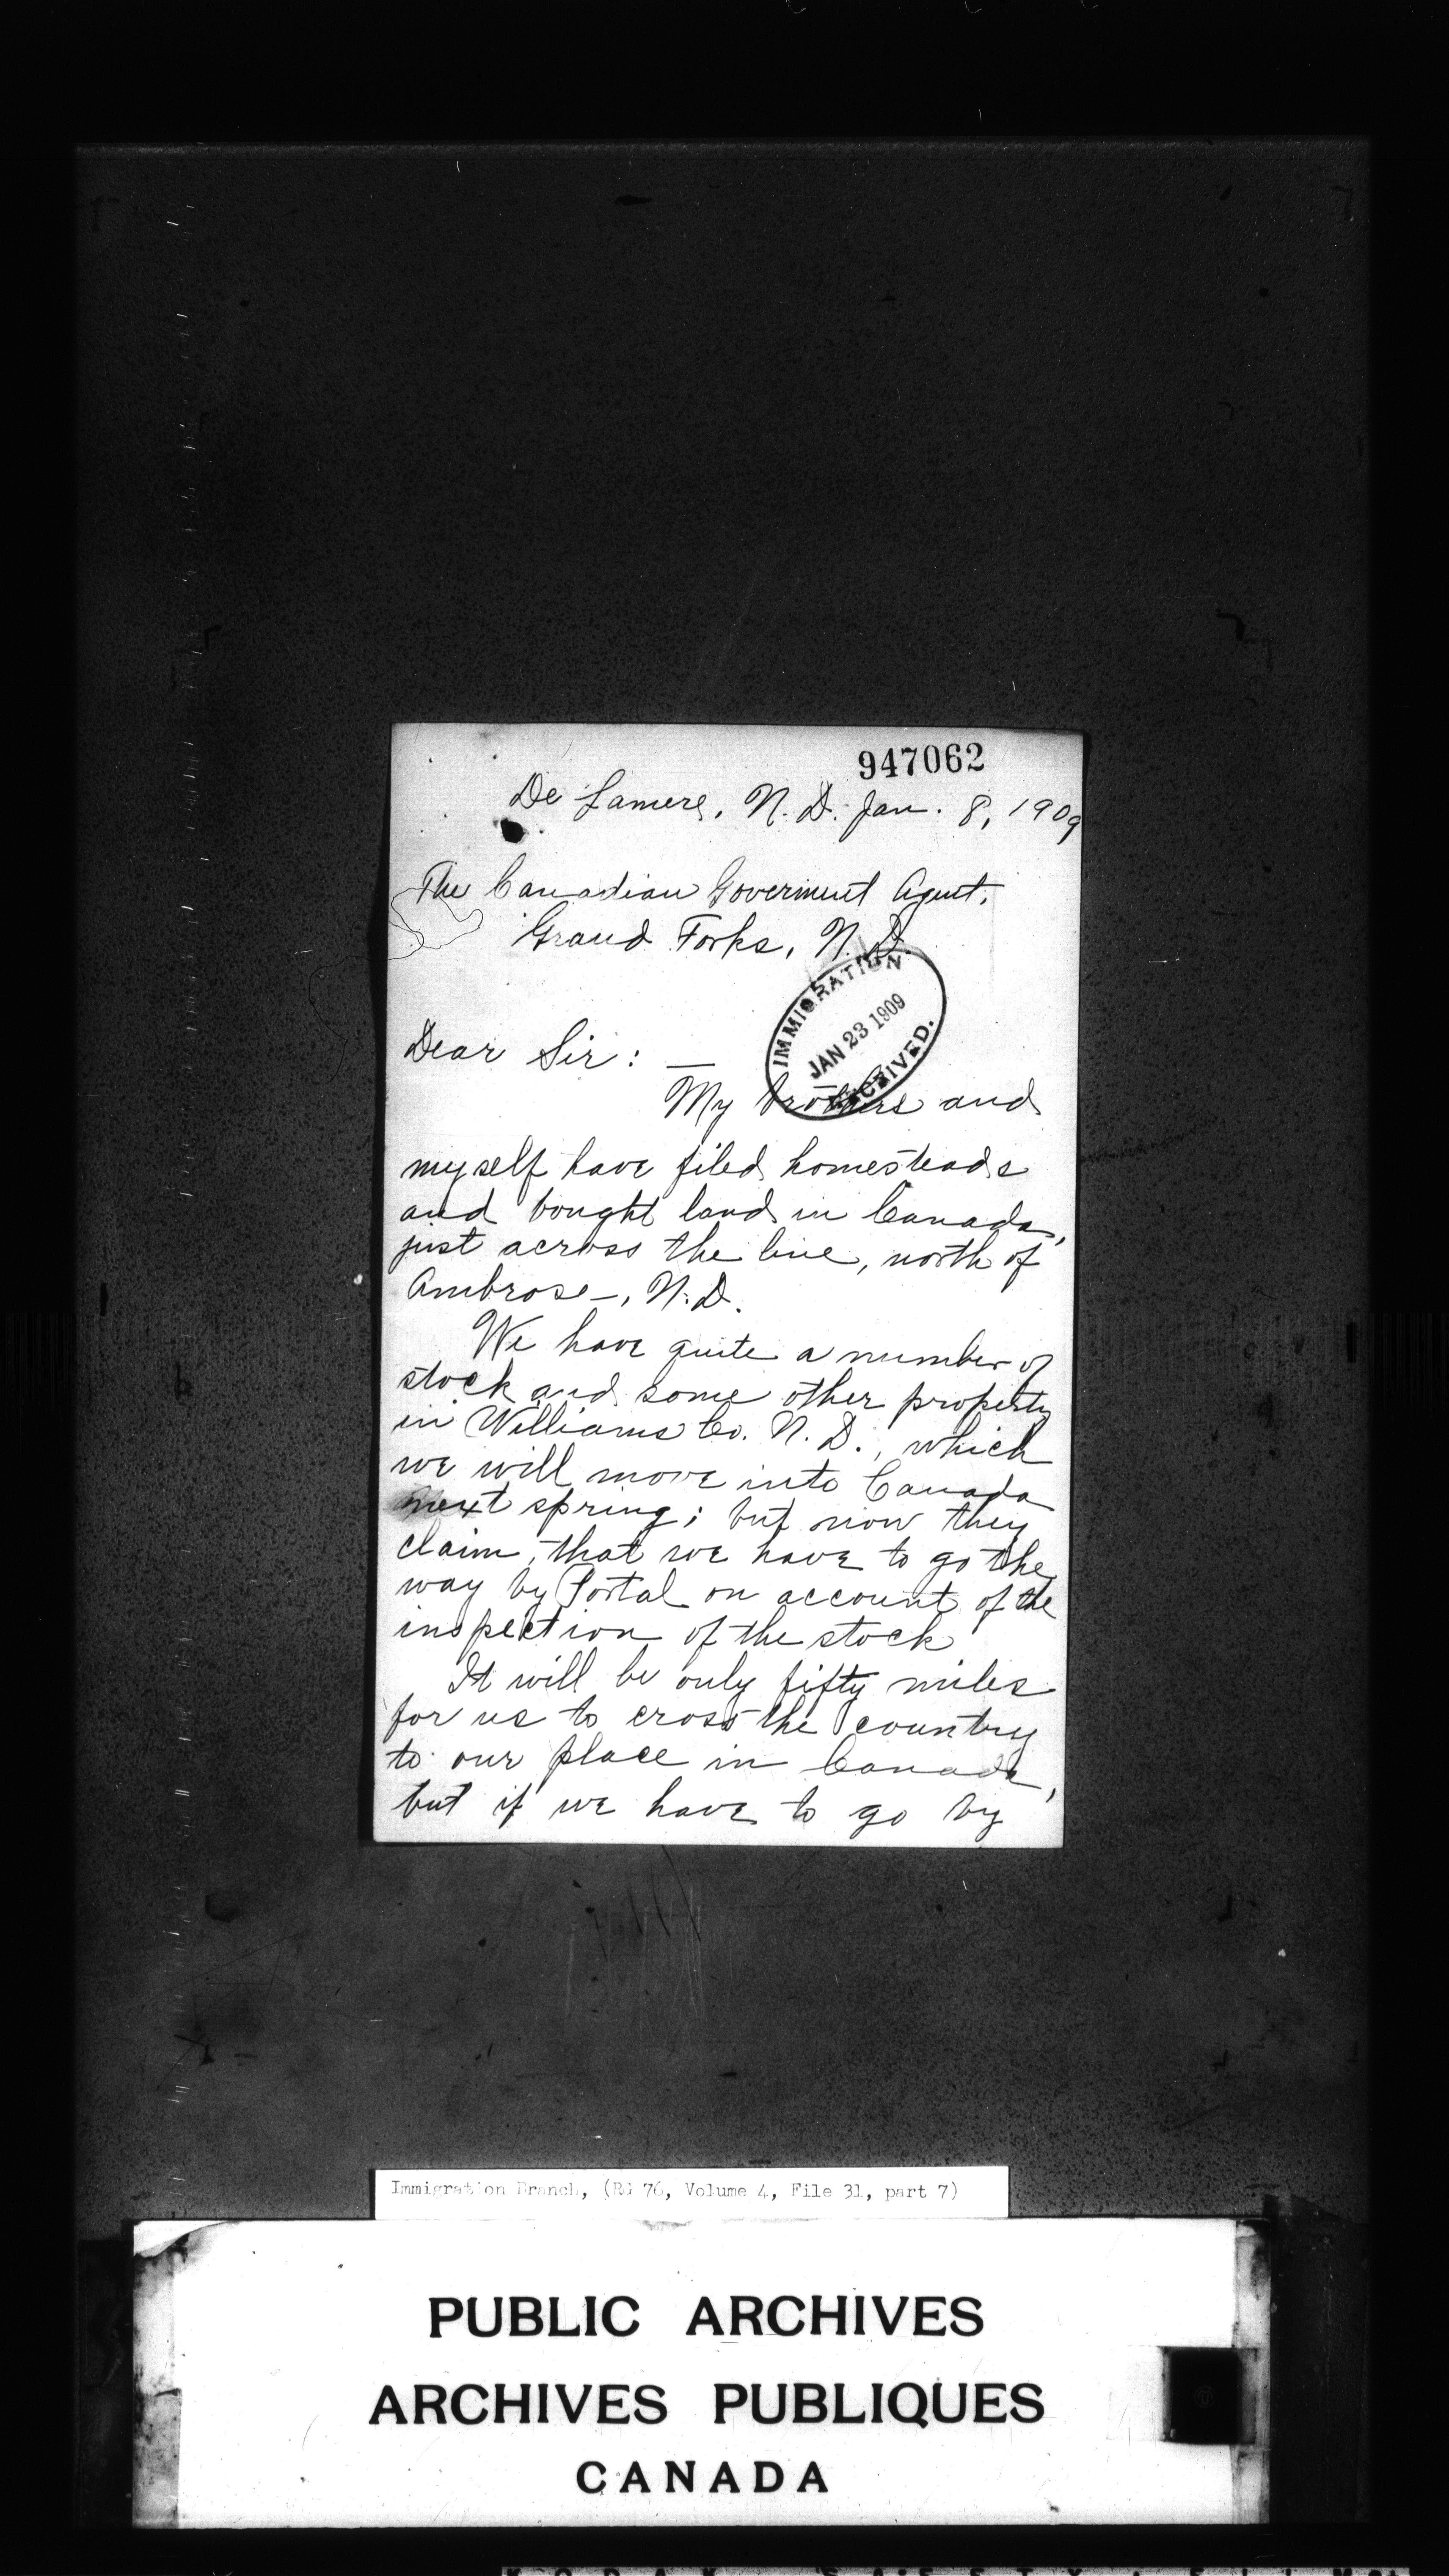 947062
De Lamere, N. D. Jan. 8, 1909
The Canadian Goverment Agent,
Grand Forks, N. D.
IMMIGRATION
JAN 23 1909
RECEIVED.
Dear Sir: —
My brothers and
myself have filed homesteads
and bought land in Canada,
just across the line, north of
Ambrose, N. D.
We have quite a number of
stock and some other property
in Williams Co. N. D., which
we will move into Canada
next spring; but now they
claim, that we have to go the
way by Portal on account of the
inspection of the stock
It will be only fifty miles
for us to cross the country
to our place in Canada,
but if we have to go by
Immigration Branch, (RG 76, Volume 4, File 31, part 7)
PUBLIC ARCHIVES
ARCHIVES PUBLIQUES
CANADA